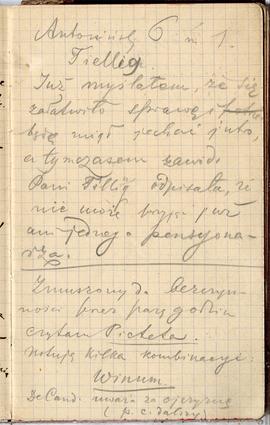 Antonińską 6 m 1.
Tiellig.
Już myślałem, że się
załatwiło sprawę i
się miał jechać jutro,
a tymczasem zawód
Pani Tillig odpisała, że
nie może przyjąć już
ani jednego pensjona-
rza.
Zmuszony do bezczyn-
ności przez parę godzin
czytam Picteta.
Notuję kilka kombinacyi:
Winum
DeCand: uważa za ojczyznę
(p. c. dalszy)